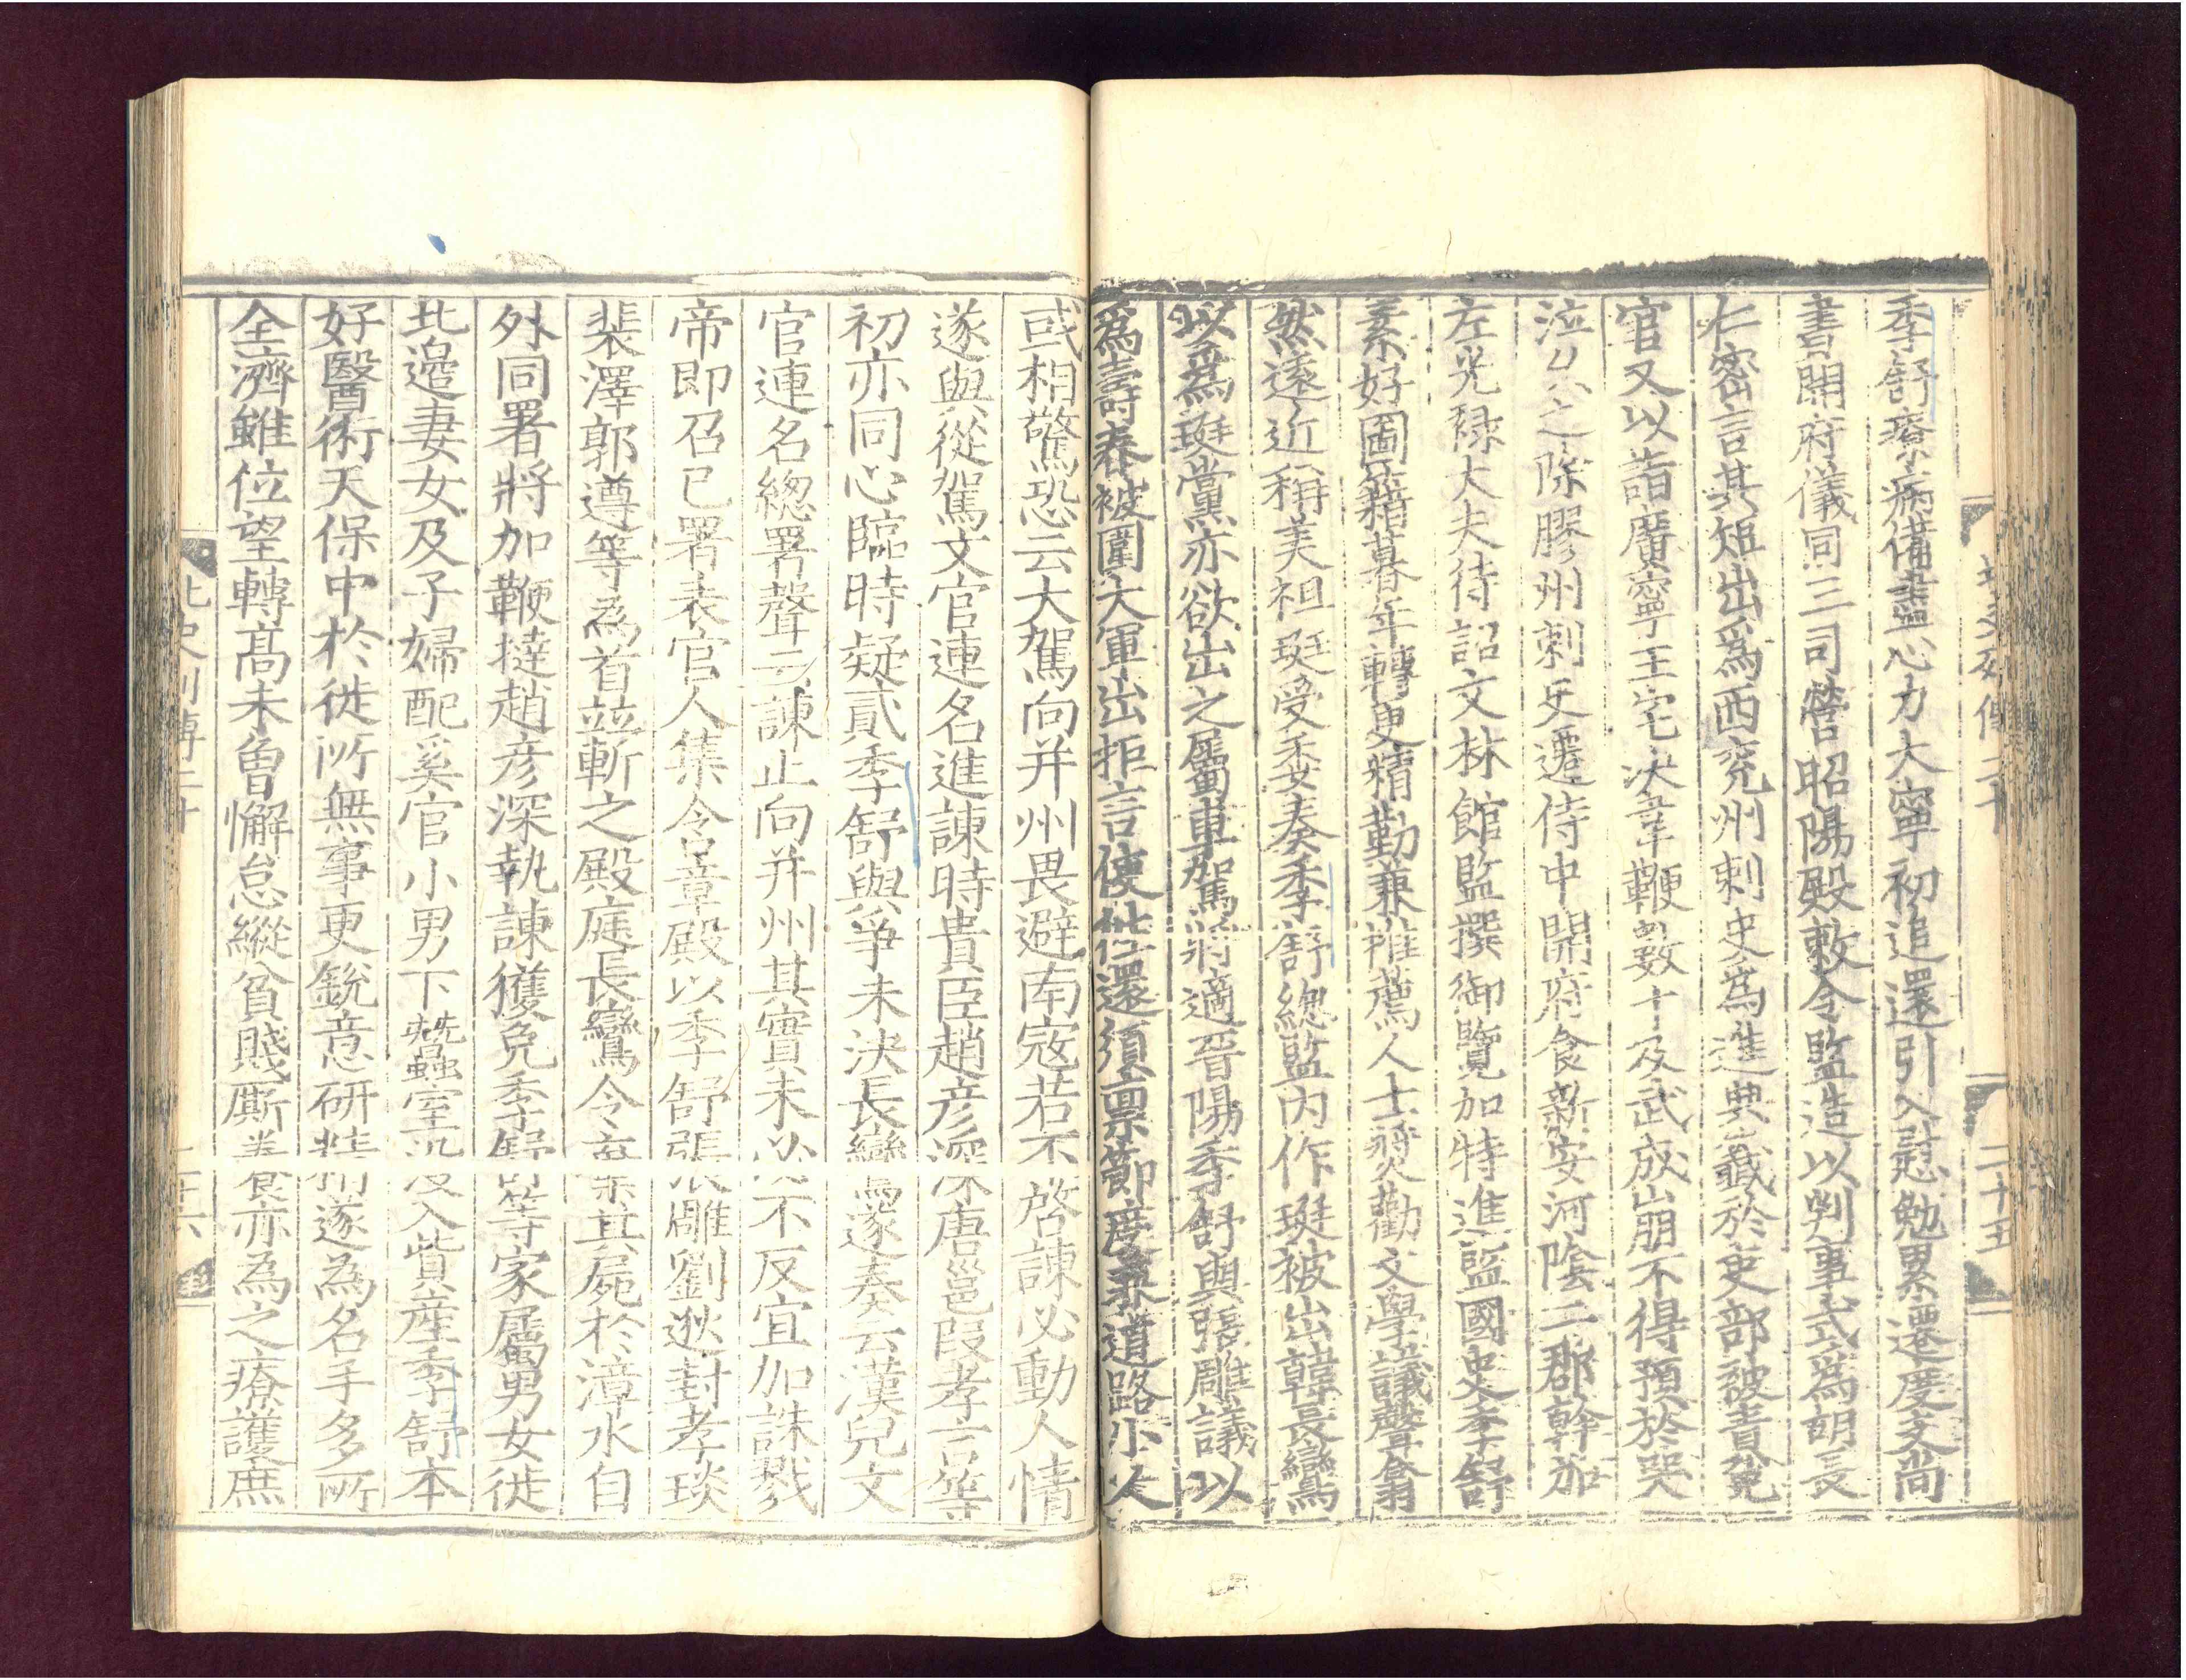 季舒療病備盡心力大寧初追還引入慰勉累遷度支尚
書開府儀同三司營昭陽殿敕令監造以判事式爲胡長
仁密言其短出爲西兖州刺史爲進典籤於吏部被責免
官又以詣廣寧王宅决韋鞭數十及武成崩不得預於哭
泣久之除膠州刺史遷侍中開府食新安河陰二郡幹加
左光祿大夫待詔文林館監撰御覽加特進監國史季舒
素好圖籍暮年轉更精勤兼推薦人士奬勸文學議聲翕
然遠近稱美祖珽受委奏季舒總監內作珽被出韓長鸞
以爲珽黨亦欲出之屬車駕將適晉陽季舒與張雕議以
爲壽春被圍大軍出拒言使往還須稟節度兼道路小人
或相驚恐云大駕向并州畏避南寇若不啓諫必動人情
遂與從駕文官連名進諫時貴臣趙彥深唐邕叚孝言等
初亦同心臨時疑貳季舒與爭未決長鸞遂奏云漢兒文
官連名總署聲云諫止向并州其實未必不反宜加誅戮
帝即召已署表官人集含章殿以季舒張雕劉逖封孝琰
裴澤郭遵等為首並斬之殿庭長鸞令棄其屍於漳水自
外同署將加鞭撻趙彥深執諫獲免季舒等家屬男女徙
北邉妻女及子婦配奚官小男下蠶室没入貲産季舒本
好醫術天保中於徙所無事更銳意研精遂為名手多所
全濟雖位望轉髙未曾懈怠縱貧賤厮養食亦為之療護庶
北史列傳二十
二十五
北史列傳二十
二十六